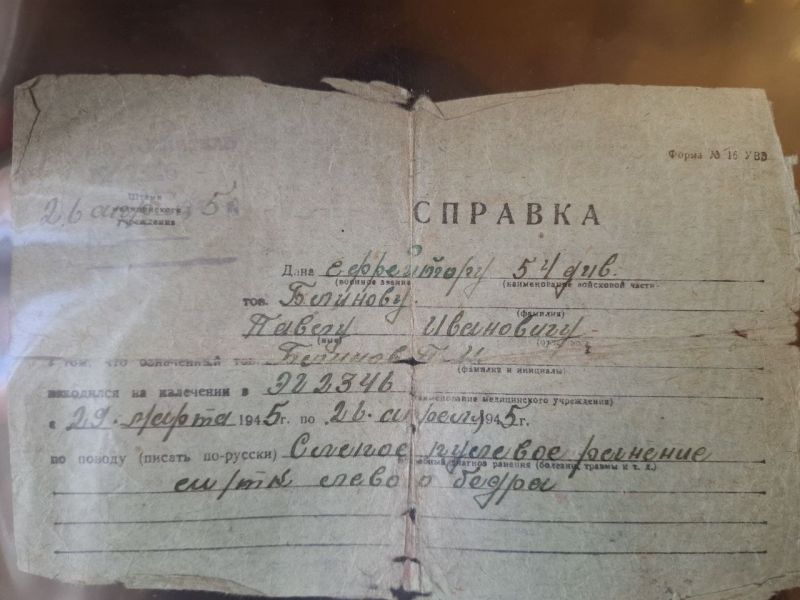 Форма № 16 УВЭ
Штамп
медицинского
учреждения
26 5
СПРАВКА
Дана ефрейтору 54 див.
(военное звание) (наименование войсковой части)
тов. Блинову
(фамилия)
Павлу Ивановичу
(имя)
в том, что означенный тов. Блинов П И
(фамилия и инициалы)
находился на излечении в ЭГ 2346
(наименование медицинского учреждения)
с 29. марта 1945 г. по 26. апреля 1945 г.
по поводу (писать по-русски) Слепое пулевое ранение
диагноз ранения (болезни, травмы и т. д.)
левого бедра